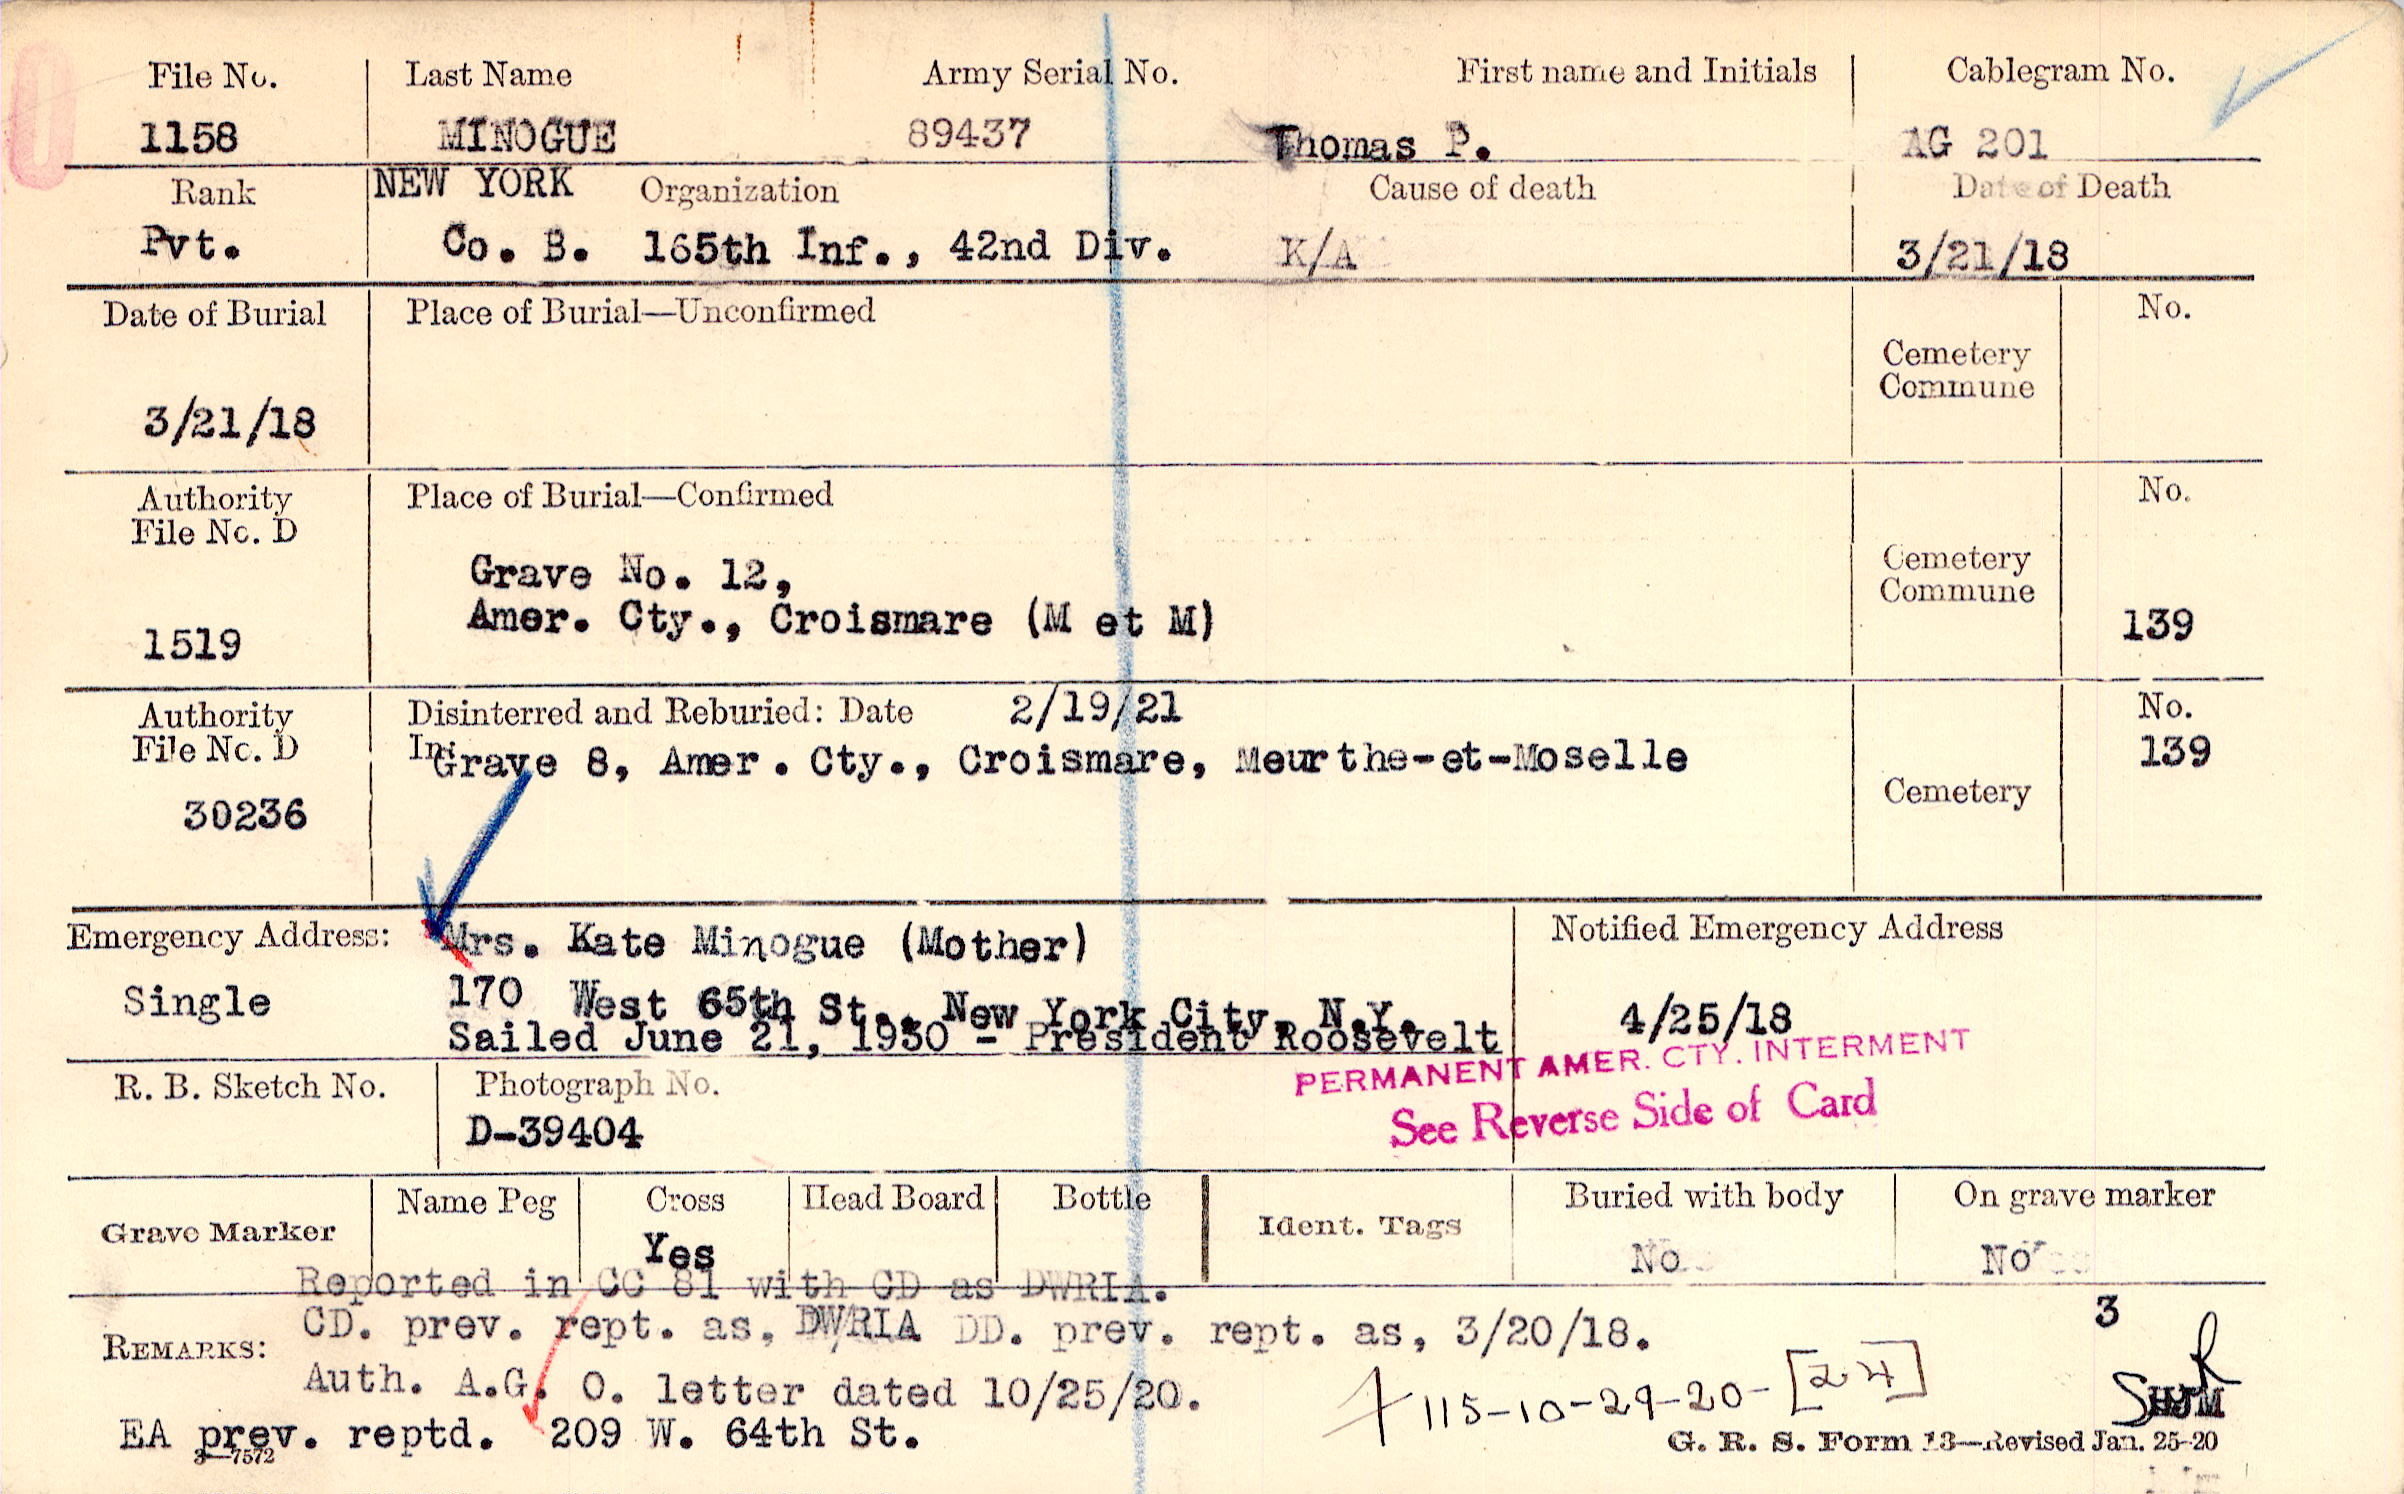 File No. Last Name Army Serial No. First name and Initials Cablegram No.
1158 MINOGUE 89437 Thomas P. AG 201
Rank NEW YORK Organization Cause of death Date of Death
Pvt. Co. B. 165th Inf., 42nd Div. K/A 3/21/18
Date of Burial Place of Burial—Unconfirmed No.
Cemetery
Commune
3/21/18
Authority Place of Burial—Confirmed No.
File No. D
Grave No. 12, Cemetery
Amer. Cty., Croismare (M et M) Commune
1519 139
Authority Disinterred and Reburied: Date 2/19/21 No.
File No. D In: Grave 8, Amer. Cty., Croismare, Meurthe-et-Moselle 139
30236 Cemetery
Emergency Address: Mrs. Kate Minogue (Mother) Notified Emergency Address
Single 170 West 65th St., New York City, N.Y. 4/25/18
Sailed June 21, 1930 - President Roosevelt
PERMANENT AMER. CTY. INTERMENT
See Reverse Side of Card
R. B. Sketch No. Photograph No.
D-39404
Grave Marker Name Peg Cross Head Board Bottle Ident. Tags Buried with body On grave marker
Yes No No
Reported in CC 81 with CD as DWRIA.
3
REMARKS: CD. prev. rept. as, DWRIA DD. prev. rept. as, 3/20/18.
Auth. A.G. O. letter dated 10/25/20.
115-10-29-20-[24]
EA prev. reptd. 209 W. 64th St.
3—7572 G. R. S. Form 13—Revised Jan. 25-20